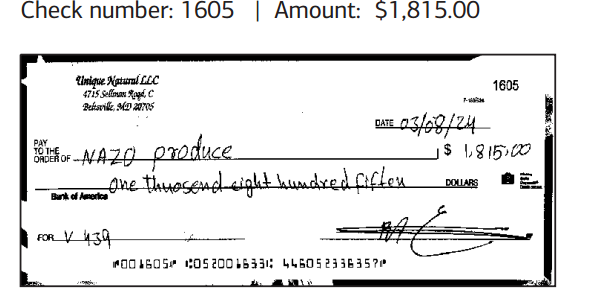 Check number: 1605 | Amount: $1,815.00
Unique Natural LLC
4715 Sellman Road, C
Beltsville, MD 20705
1605
DATE 03/08/24
PAY TO THE ORDER OF NAZO produce $ 1,815.00
one thuosend eight hundred fiften DOLLARS
Bank of America
FOR V 439
⑈001605⑈ ⑆052001633⑆ 446052336357⑈